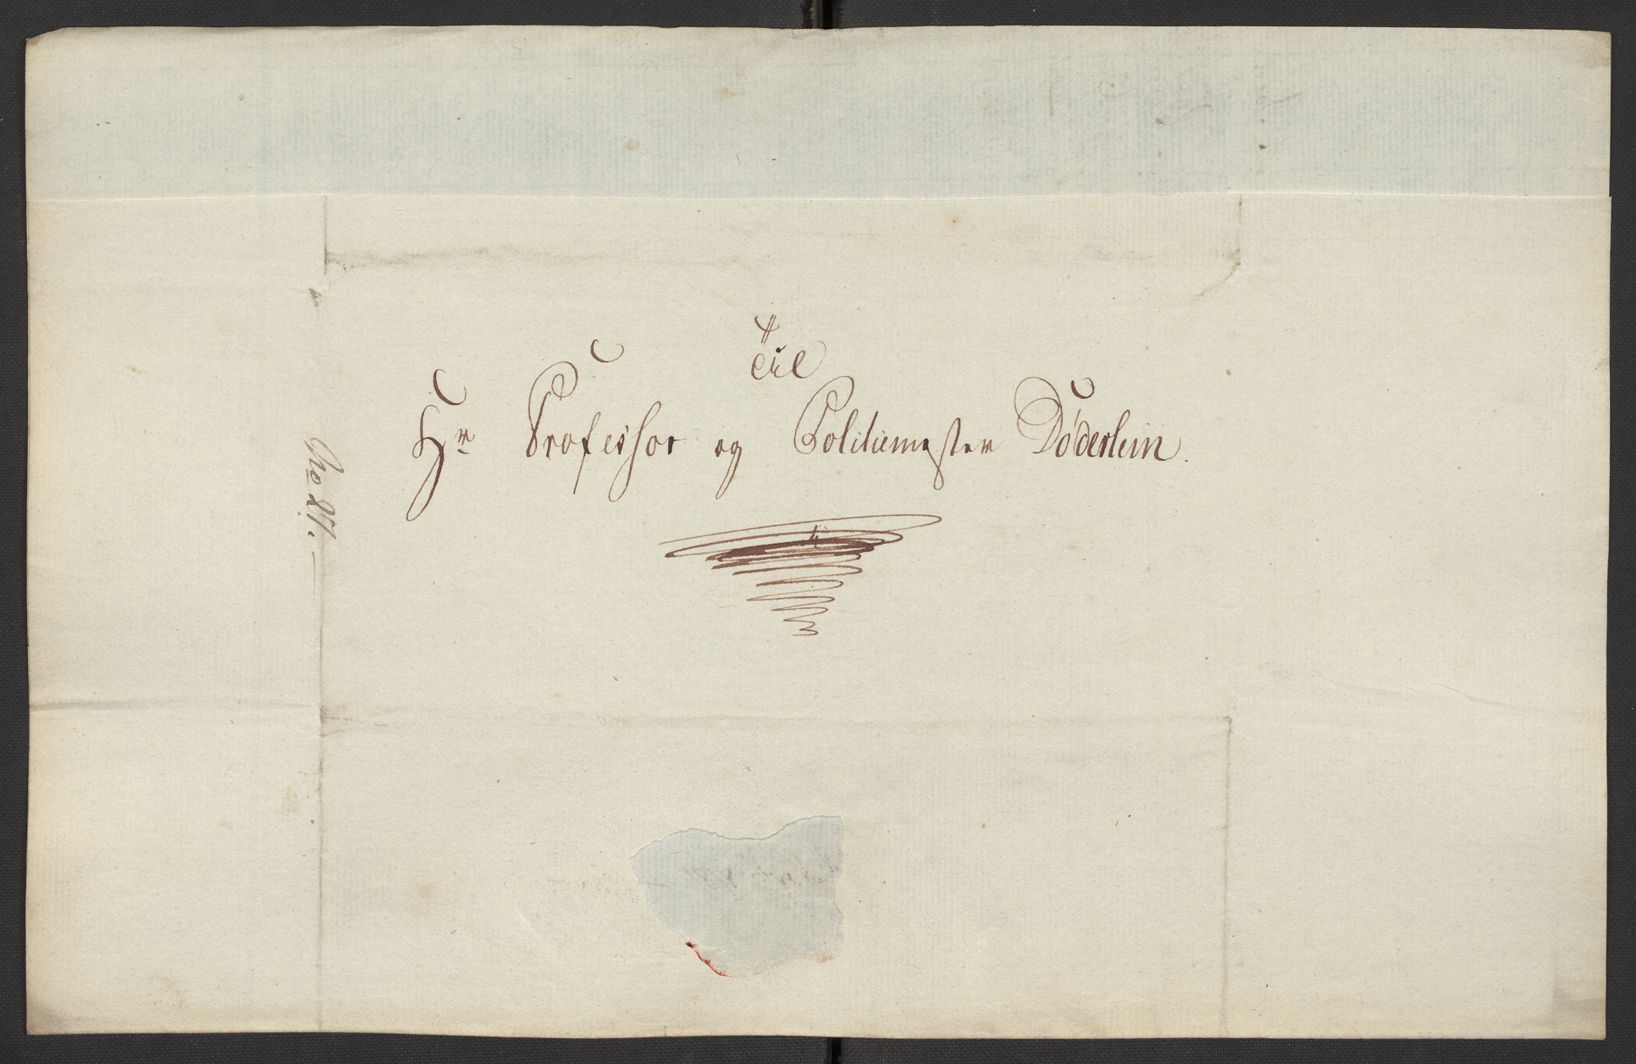 Til
Hr Professor og Politiemester Döderlein.
No 27.